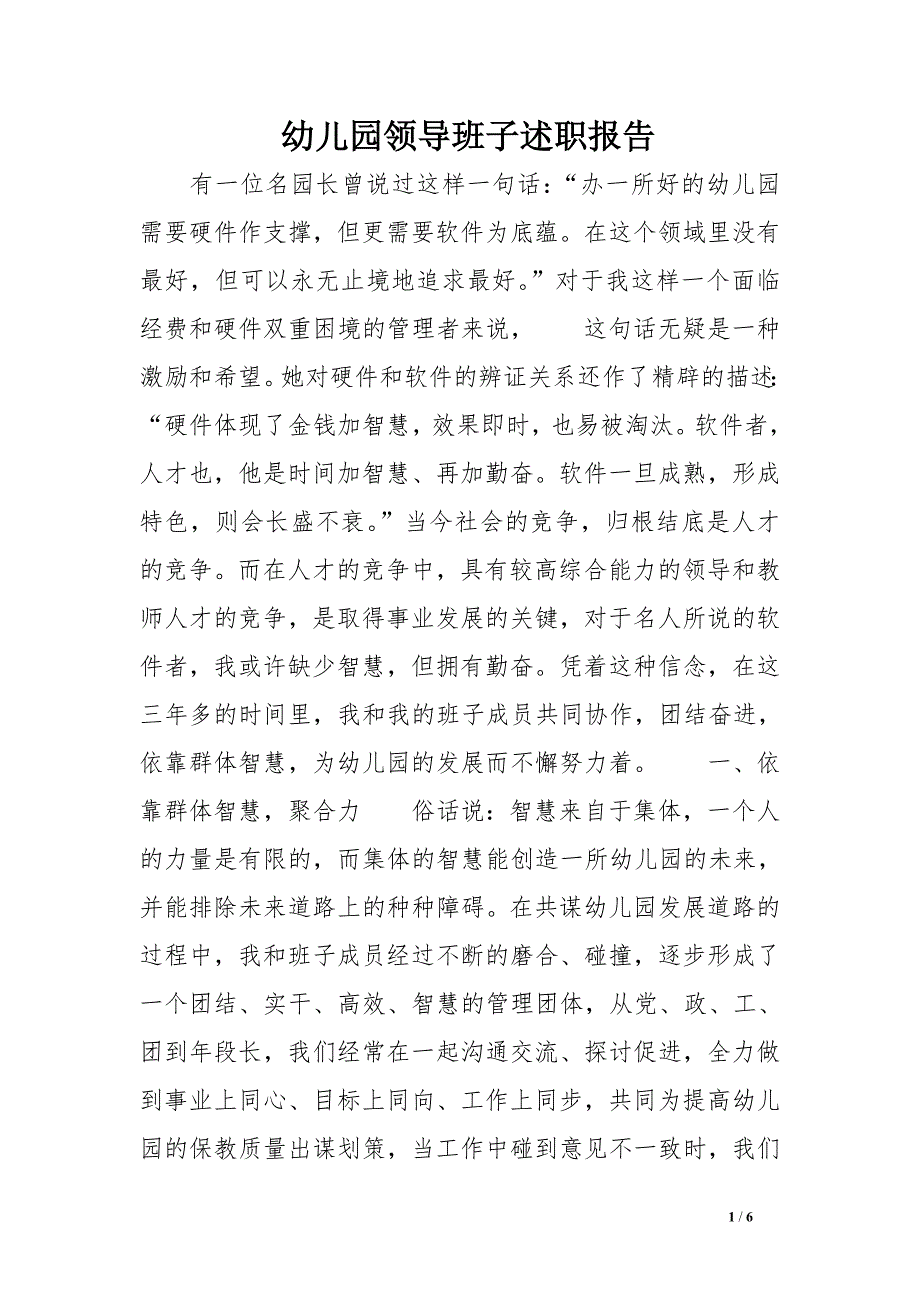 幼儿园领导班子述职报告
有一位名园长曾说过这样一句话：“办一所好的幼儿园
需要硬件作支撑，但更需要软件为底蕴。在这个领域里没有
最好，但可以永无止境地追求最好。”对于我这样一个面临
经费和硬件双重困境的管理者来说，　　这句话无疑是一种
激励和希望。她对硬件和软件的辨证关系还作了精辟的描述：
“硬件体现了金钱加智慧，效果即时，也易被淘汰。软件者，
人才也，他是时间加智慧、再加勤奋。软件一旦成熟，形成
特色，则会长盛不衰。”当今社会的竞争，归根结底是人才
的竞争。而在人才的竞争中，具有较高综合能力的领导和教
师人才的竞争，是取得事业发展的关键，对于名人所说的软
件者，我或许缺少智慧，但拥有勤奋。凭着这种信念，在这
三年多的时间里，我和我的班子成员共同协作，团结奋进，
依靠群体智慧，为幼儿园的发展而不懈努力着。　　一、依
靠群体智慧，聚合力　　俗话说：智慧来自于集体，一个人
的力量是有限的，而集体的智慧能创造一所幼儿园的未来，
并能排除未来道路上的种种障碍。在共谋幼儿园发展道路的
过程中，我和班子成员经过不断的磨合、碰撞，逐步形成了
一个团结、实干、高效、智慧的管理团体，从党、政、工、
团到年段长，我们经常在一起沟通交流、探讨促进，全力做
到事业上同心、目标上同向、工作上同步，共同为提高幼儿
园的保教质量出谋划策，当工作中碰到意见不一致时，我们
1 / 6